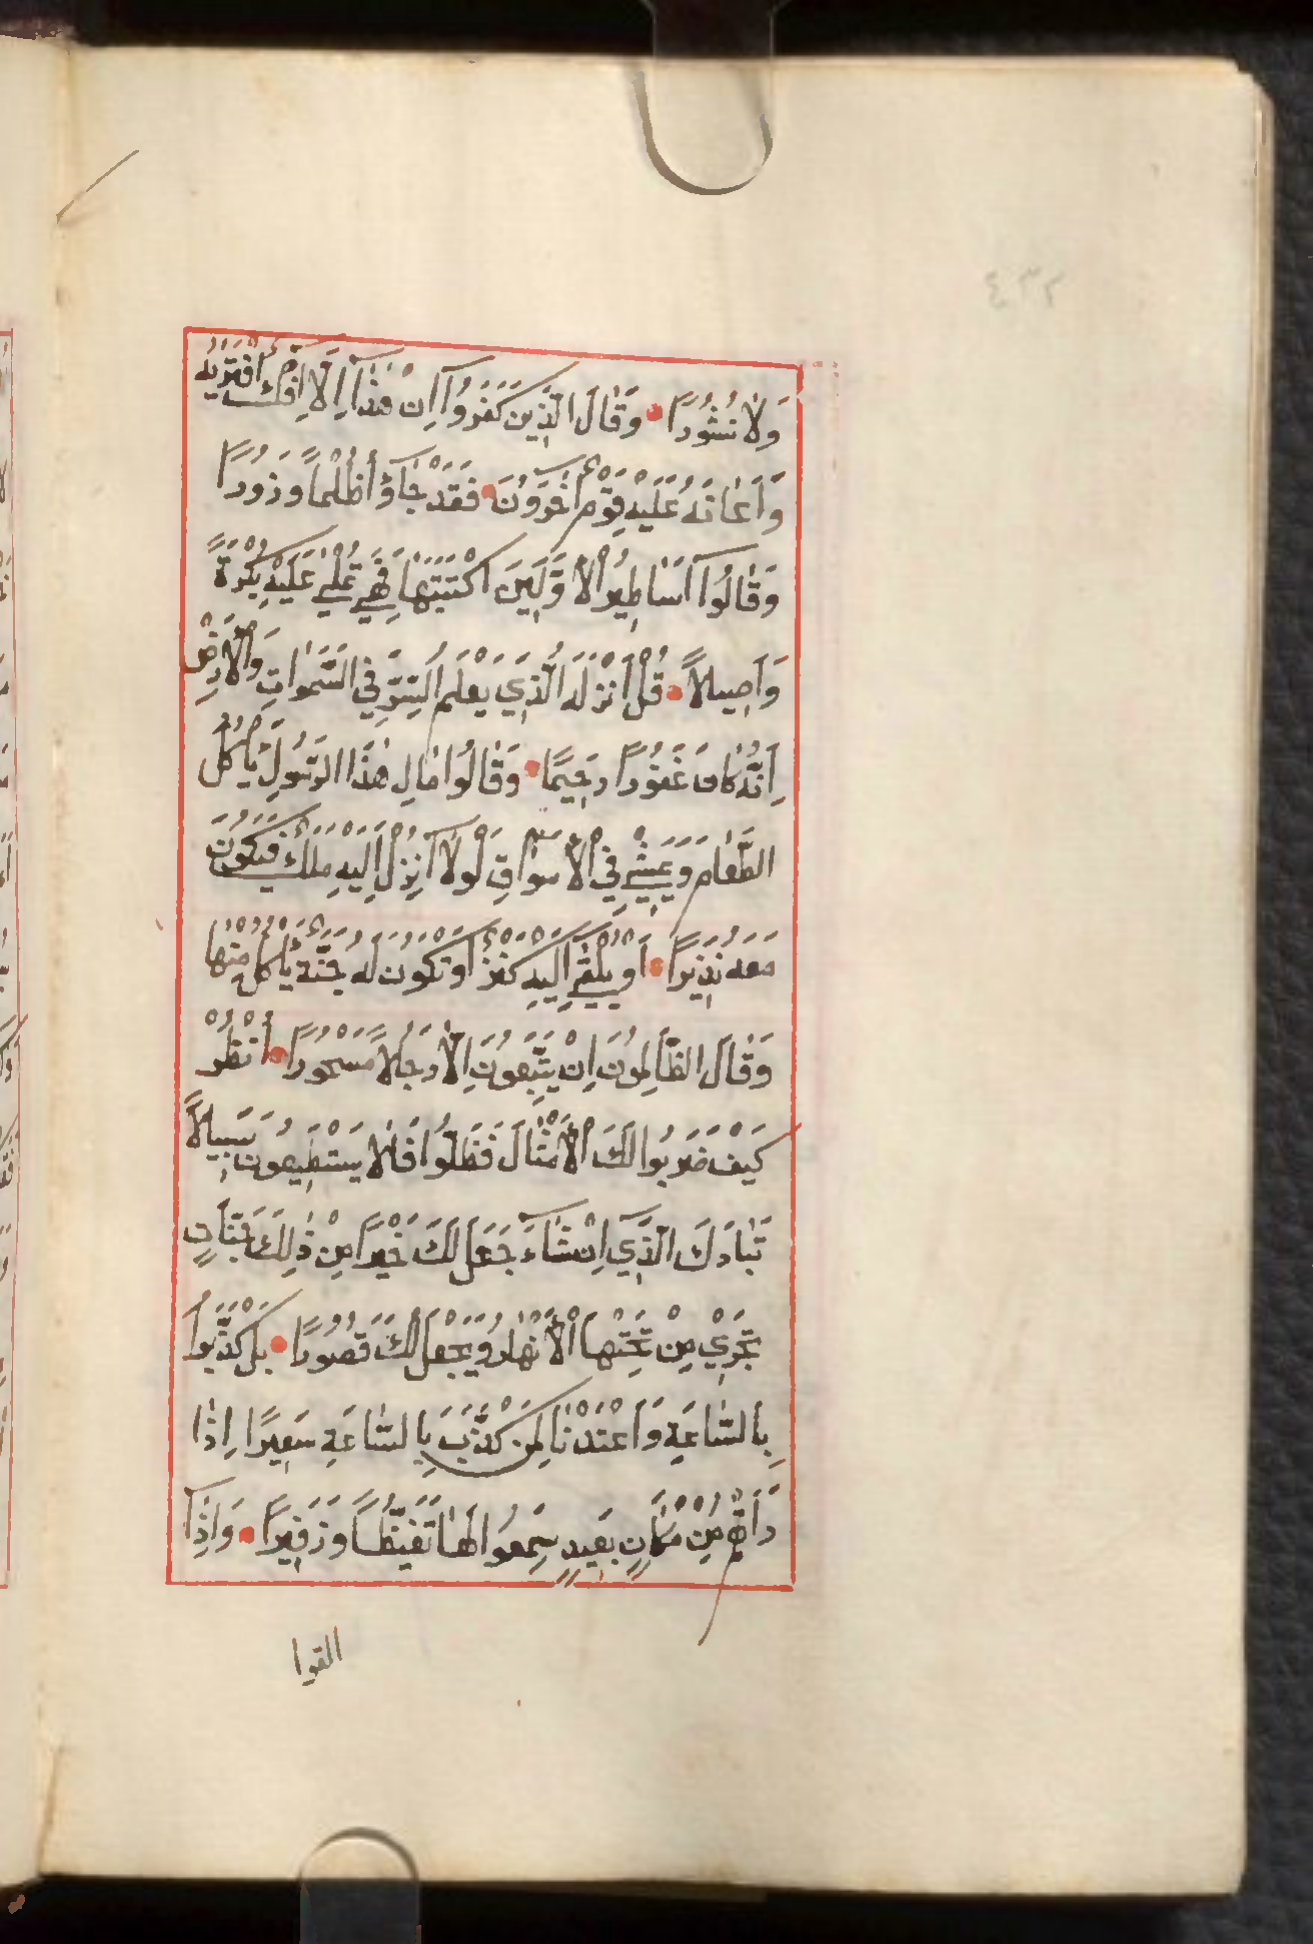 ٤٣٢
وَلَا نُشُورًا وَقَالَ الَّذِينَ كَفَرُوا إِنْ هٰذَا إِلَّا إِفْكٌ افْتَرٰيهُ
وَأَعَانَهُ عَلَيْهِ قَوْمٌ آخَرُونَ فَقَدْ جَاؤُا ظُلْمًا وَزُورًا
وَقَالُوا أَسَاطِيرُ الْأَوَّلِينَ اكْتَتَبَهَا فَهِيَ تُمْلٰى عَلَيْهِ بُكْرَةً
وَأَصِيلًا قُلْ أَنْزَلَهُ الَّذِي يَعْلَمُ السِّرَّ فِي السَّمٰوَاتِ وَالْأَرْضِ
إِنَّهُ كَانَ غَفُورًا رَحِيمًا وَقَالُوا مَالِ هٰذَا الرَّسُولِ يَأْكُلُ
الطَّعَامَ وَيَمْشِي فِي الْأَسْوَاقِ لَوْلَا أُنْزِلَ إِلَيْهِ مَلَكٌ فَيَكُونَ
مَعَهُ نَذِيرًا أَوْ يُلْقٰى إِلَيْهِ كَنْزٌ أَوْ تَكُونُ لَهُ جَنَّةٌ يَأْكُلُ مِنْهَا
وَقَالَ الظَّالِمُونَ إِنْ يَتَّبِعُونَ إِلَّا رَجُلًا مَسْحُورًا اُنْظُرْ
كَيْفَ ضَرَبُوا لَكَ الْأَمْثَالَ فَضَلُّوا فَلَا يَسْتَطِيعُونَ سَبِيلًا
تَبَارَكَ الَّذِي إِنْ شَاءَ جَعَلَ لَكَ خَيْرًا مِنْ ذٰلِكَ جَنَّاتٍ
تَجْرِي مِنْ تَحْتِهَا الْأَنْهَارُ وَيَجْعَلْ لَكَ قُصُورًا بَلْ كَذَّبُوا
بِالسَّاعَةِ وَأَعْتَدْنَا لِمَنْ كَذَّبَ بِالسَّاعَةِ سَعِيرًا إِذَا
رَأَتْهُمْ مِنْ مَكَانٍ بَعِيدٍ سَمِعُوا لَهَا تَغَيُّظًا وَزَفِيرًا وَإِذَا
القوا